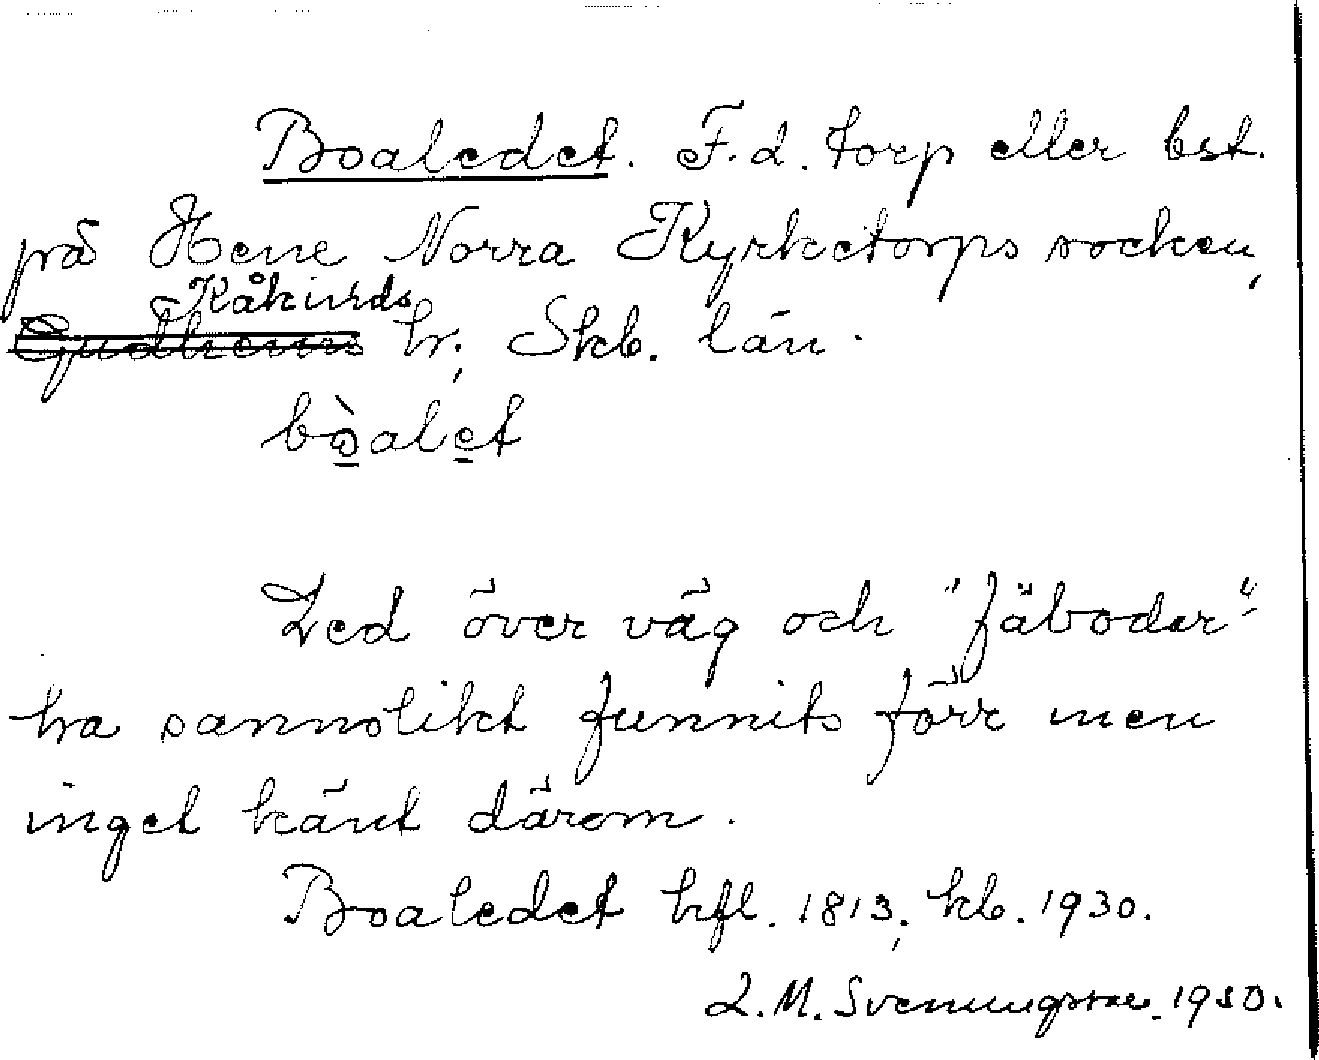 Boaledet. F.d. torp eller bst.
på Hene Norra Kyrketorps socken,
Kåkinds
Gudhems hr; Skb. län.
bòalet
Led över väg och "fäbodar"
ha sannolikt funnits förr men
inget känt därom.
Boaledet hfl. 1813; kb. 1930.
L. M. Svenungsson. 1950.